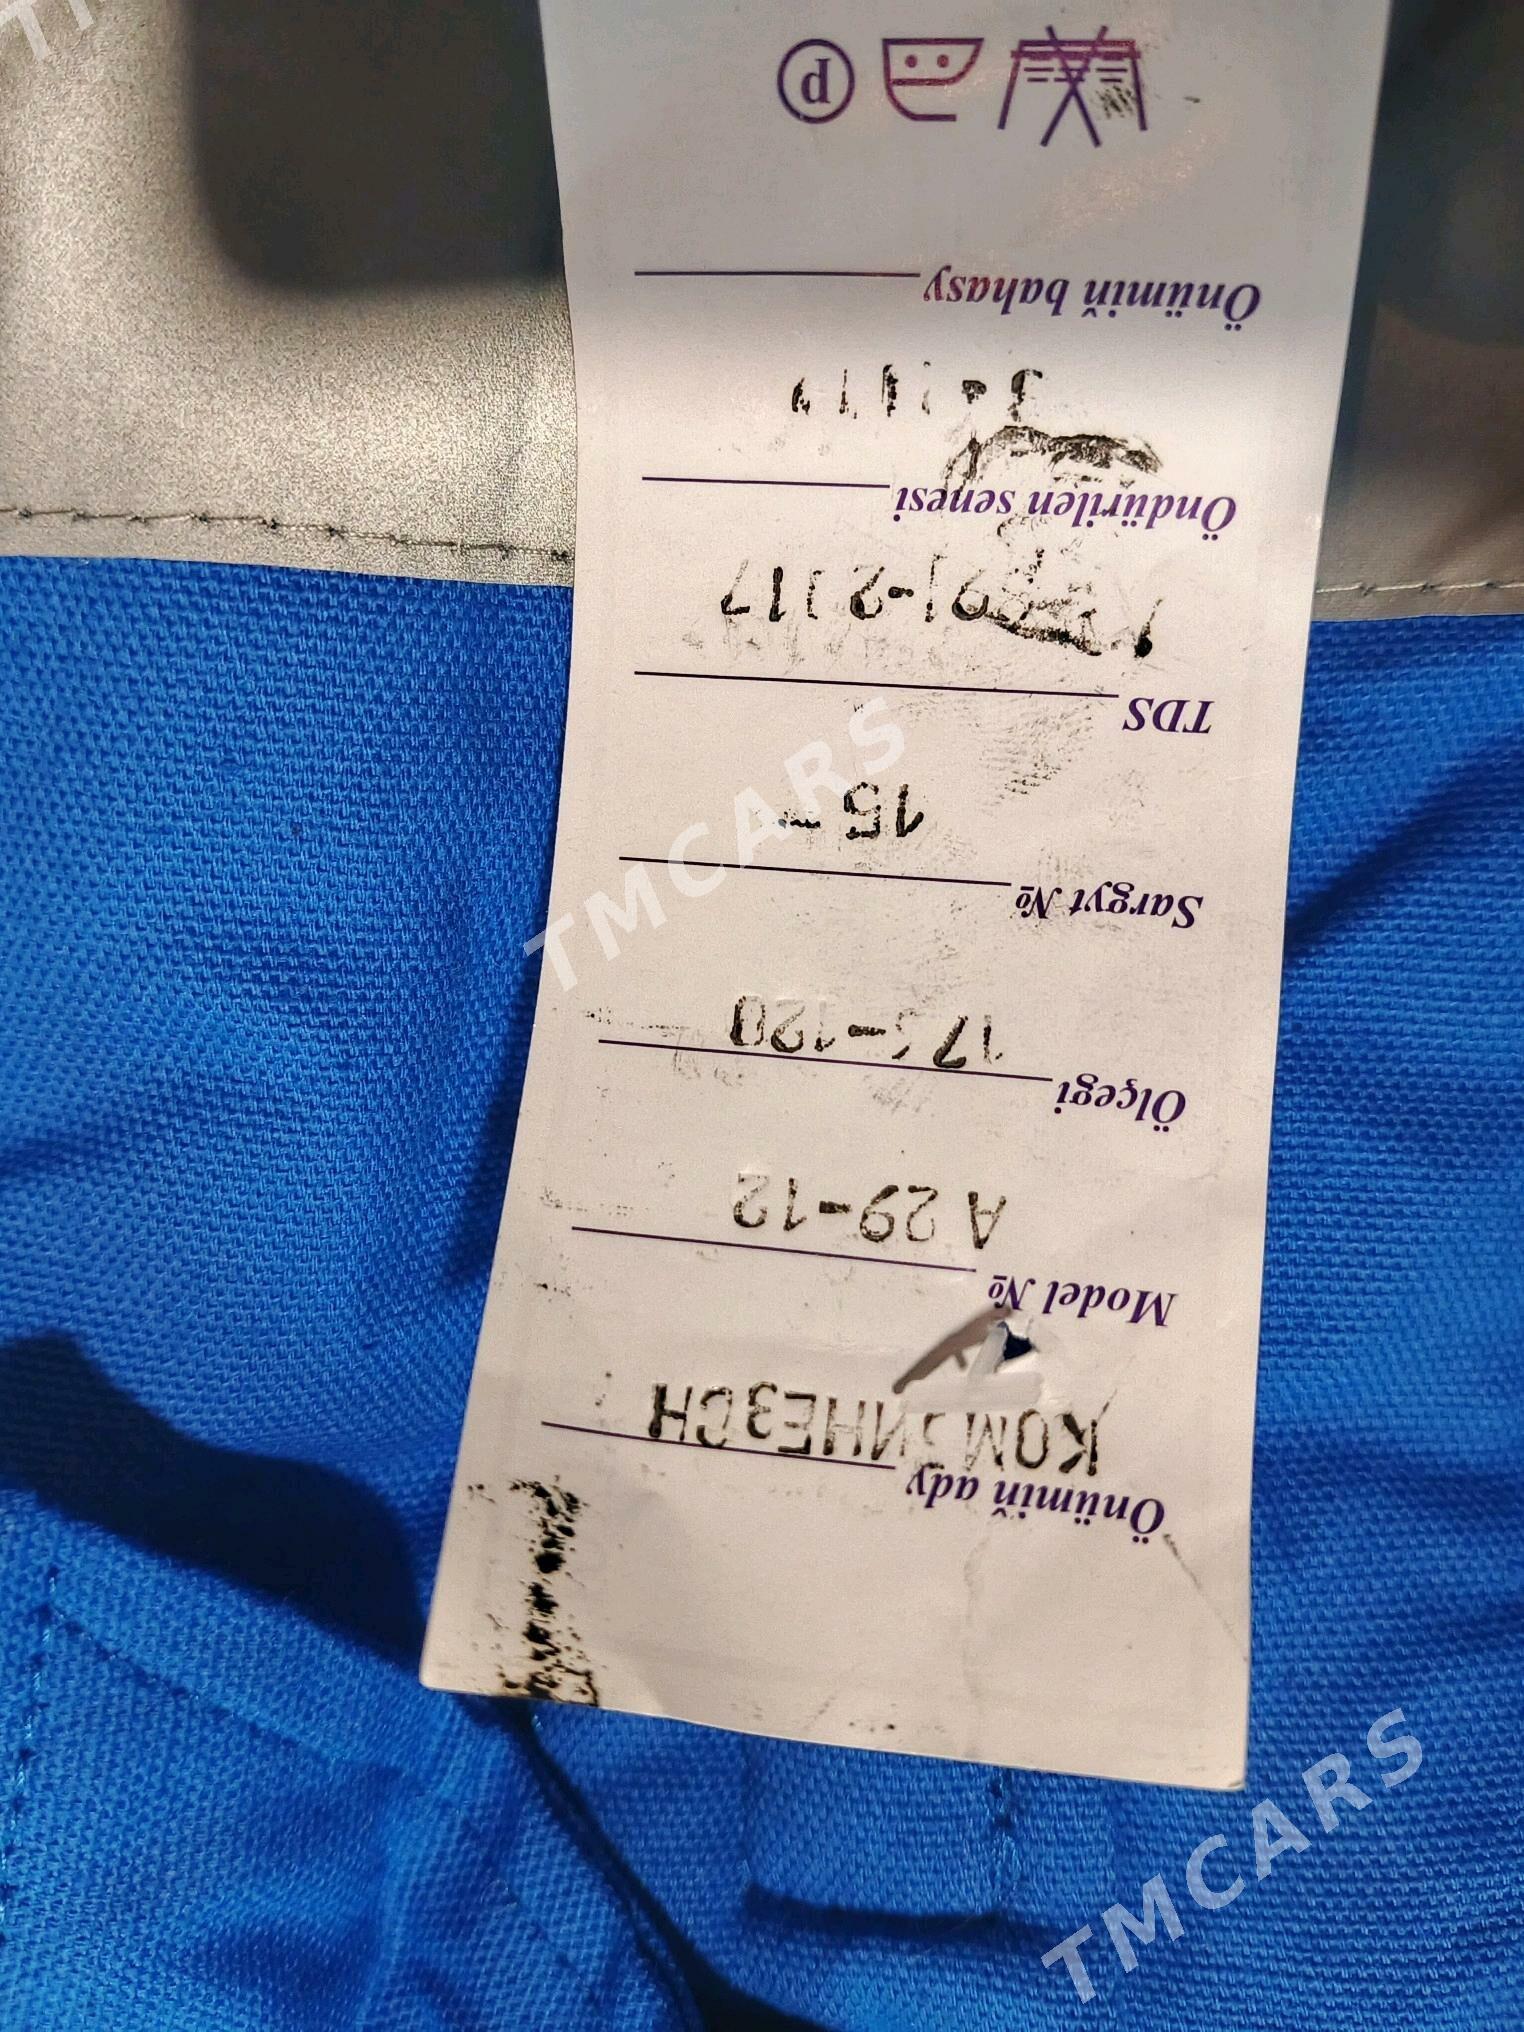 Önümiň ady КОМБИНЕЗОН
Model № A 29-12
Ölçegi 176-120
Sargyt № 15
TDS
Öndürilen senesi
Önümiň bahasy
P
TMCARS
TMCARS